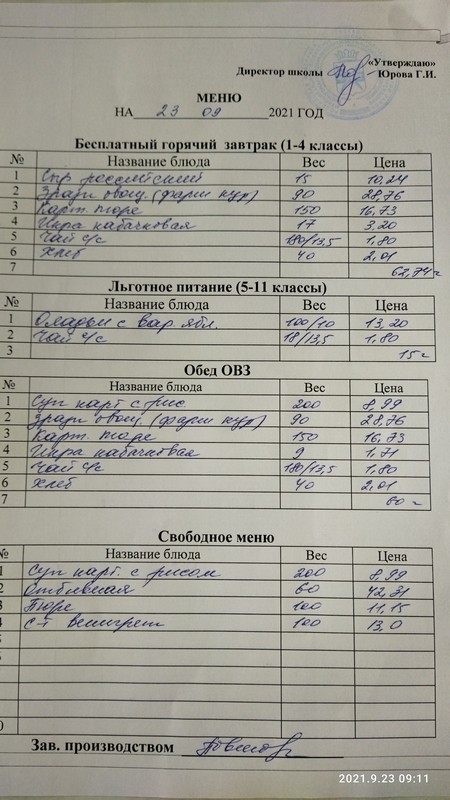 «Утверждаю»
Директор школы Юрова Г.И.
МЕНЮ
НА 23 09 2021 ГОД
Бесплатный горячий завтрак (1-4 классы)
№ Название блюда Вес Цена
1 Сыр российский 15 10,24
2 Зразы овощ. (фарш кур) 90 28,76
3 Карт. пюре 150 16,73
4 Икра кабачковая 17 3,20
5 Чай с/с 180/13,5 1,80
6 Хлеб 40 2,01
7 62,74
Льготное питание (5-11 классы)
№ Название блюда Вес Цена
1 Оладьи с вар. ябл. 100/10 13,20
2 Чай с/с 18/13,5 1,80
3 15
Обед ОВЗ
№ Название блюда Вес Цена
1 Суп карт с рис 200 8,99
2 Зразы овощ. (фарш кур) 90 28,76
3 Карт. пюре 150 16,73
4 Икра кабачковая 9 1,71
5 Чай с/с 180/13,5 1,80
6 Хлеб 40 2,01
7 60
Свободное меню
№ Название блюда Вес Цена
Суп карт. с рисом 200 8,99
Отбивная 60 42,31
Пюре 100 11,15
с-т винегрет 100 13,0
Зав. производством
2021.9.23 09:11